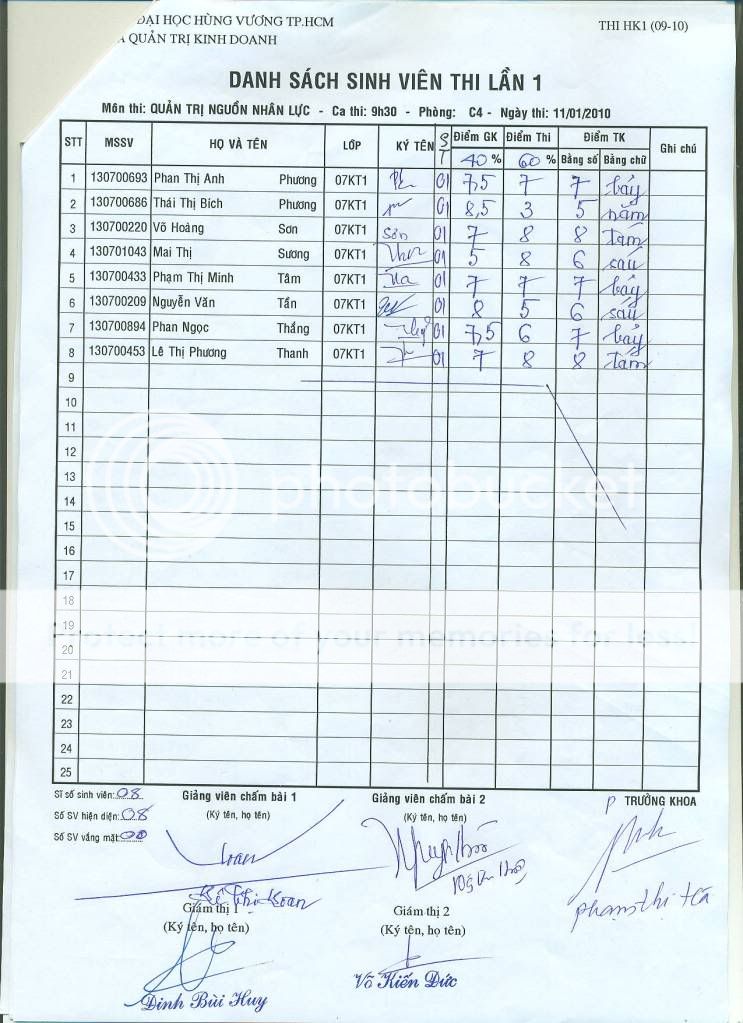 ĐẠI HỌC HÙNG VƯƠNG TP.HCM
QUẢN TRỊ KINH DOANH
THI HK1 (09-10)
DANH SÁCH SINH VIÊN THI LẦN 1
Môn thi: QUẢN TRỊ NGUỒN NHÂN LỰC - Ca thi: 9h30 - Phòng: C4 - Ngày thi: 11/01/2010
STT MSSV HỌ VÀ TÊN LỚP KÝ TÊN S T Điểm GK Điểm Thi Điểm TK Ghi chú
40 % 60 % Bằng số Bằng chữ
1 130700693 Phan Thị Anh Phương 07KT1 01 7,5 7 7 bảy
2 130700686 Thái Thị Bích Phương 07KT1 01 8,5 3 5 năm
3 130700220 Võ Hoàng Sơn 07KT1 Sơn 01 7 8 8 tám
4 130701043 Mai Thị Sương 07KT1 01 5 8 6 sáu
5 130700433 Phạm Thị Minh Tâm 07KT1 01 7 7 7 bảy
6 130700209 Nguyễn Văn Tần 07KT1 01 8 5 6 sáu
7 130700894 Phan Ngọc Thắng 07KT1 01 7,5 6 7 bảy
8 130700453 Lê Thị Phương Thanh 07KT1 01 7 8 8 tám
9
10
11
12
13
14
15
16
17
18
19
20
21
22
23
24
25
photobucket
Protect more of your memories for less!
Sĩ số sinh viên: 08 Giảng viên chấm bài 1 Giảng viên chấm bài 2 P TRƯỞNG KHOA
Số SV hiện diện: 08 (Ký tên, họ tên) (Ký tên, họ tên)
Số SV vắng mặt: 00
Loan
Phạm Thị
Giám thị 1 Giám thị 2
(Ký tên, họ tên) (Ký tên, họ tên)
Đinh Bùi Huy Võ Kiến Đức